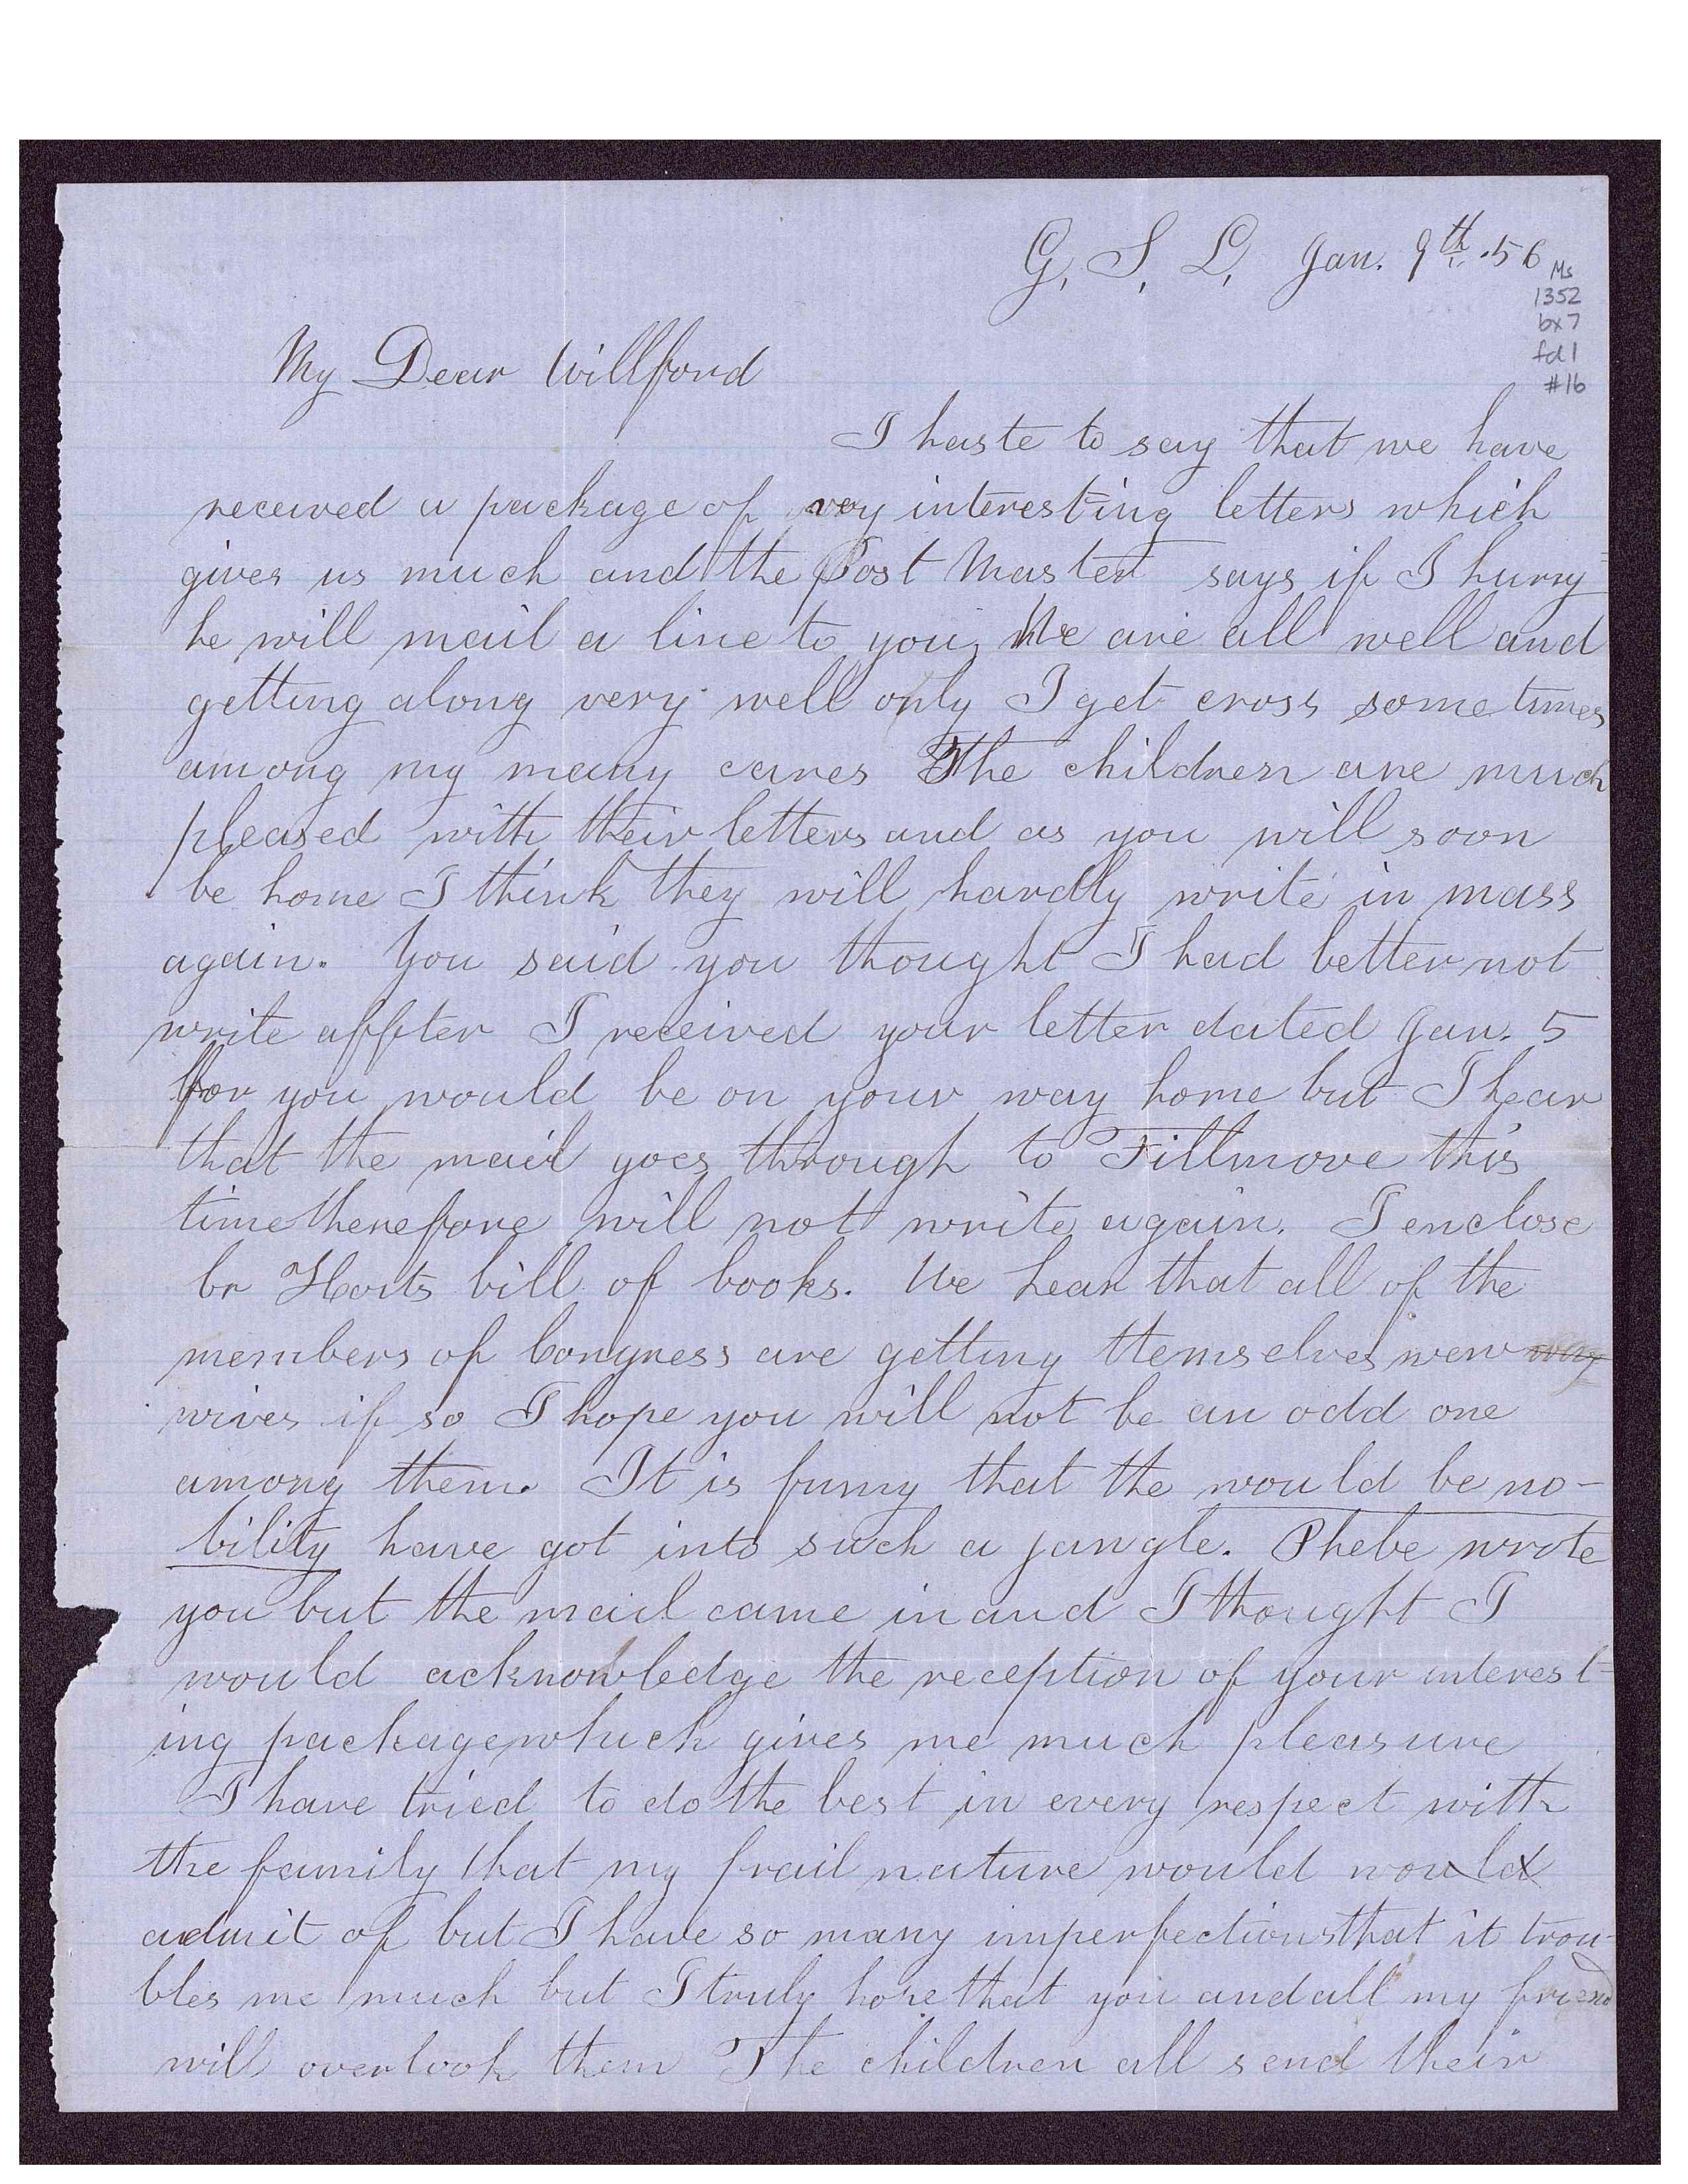 G, S, L, Jan. 9th. .56
Ms
1352
bx7
fd1
#16
My Dear Willford
I haste to say that we have
received a package of very interesting letters which
gives us much and the Post Master says if I hurry
he will mail a line to you, We are all well and
getting along very well only I get cross some times
among my many cares The children are much
pleased with their letters and as you will soon
be home I think they will hardly write in mass
again. You said you thought I had better not
write affter I received your letter dated Jan. 5
for you would be on your way home but I hear
that the mail goes through to Fillmore this
time therefore will not write again. I enclose
br bill of books. We hear that all of the
members of Congress are getting themselves new way
wives if so I hope you will not be an odd one
among them. It is funny that the would be no-
bility have got into such a jangle. Phebe wrote
you but the mail came in and I thought I
would acknowledge the reception of your interest=
ing package which gives me much pleasure
I have tried to do the best in every respect with
the family that my frail nature would would
admit of but I have so many imperfections that it trou-
bles me much but I truly hope that you and all my friend
will overlook them The children all send their